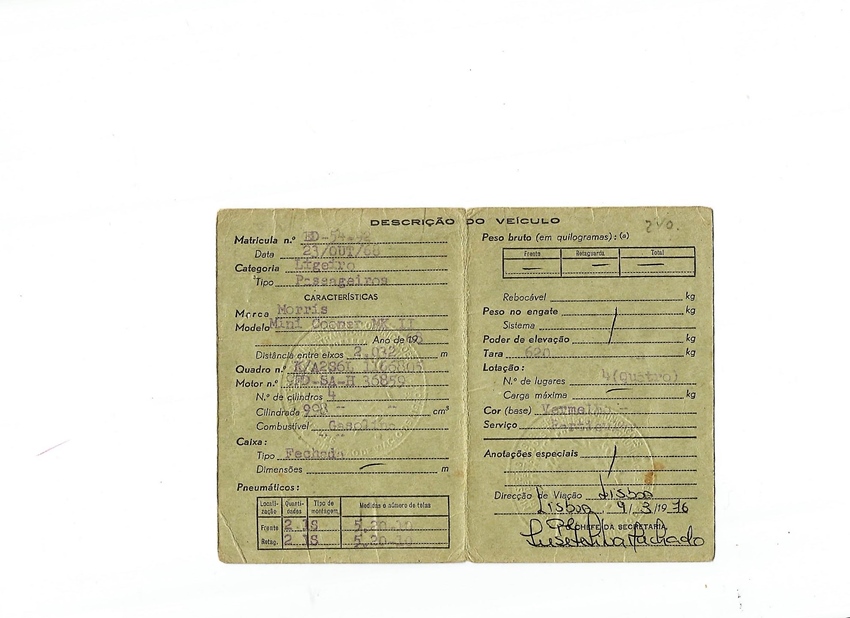 DESCRIÇÃO DO VEÍCULO
Matrícula n.º ED-54-
Data 23/OUT/68
Categoria Ligeiro
Tipo Passageiros
CARACTERÍSTICAS
Marca Morris
Modelo Mini Cooper MK II
Ano de 1968
Distância entre eixos 2,032 m
Quadro n.º
Motor n.º 9FD-SA-H 36859
N.º de cilindros 4
Cilindrada 998 cm³
Combustível Gasolina
Caixa:
Tipo Fechada
Dimensões — m
Pneumáticos:
Locali-zação Quanti-dades Tipo de montagem Medidas e número de telas
Frente 2 IS 5,20-10
Retag. 2 IS 5,20-10
Peso bruto (em quilogramas): (a)
Frente Retaguarda Total
— — —
Rebocável kg
Peso no engate kg
Sistema
Poder de elevação kg
Tara 620 kg
Lotação:
N.º de lugares 4 (quatro)
Carga máxima — kg
Cor (base) Vermelho -
Serviço Particular
Anotações especiais
Direcção de Viação Lisboa
Lisboa, 9/3/1976
O CHEFE DA SECRETARIA,